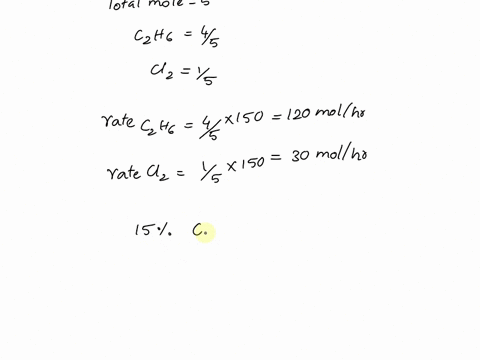 Total mole = 5
C₂H₆ = 4/5
Cl₂ = 1/5
rate C₂H₆ = 4/5 × 150 = 120 mol/hr
rate Cl₂ = 1/5 × 150 = 30 mol/hr
15% C.